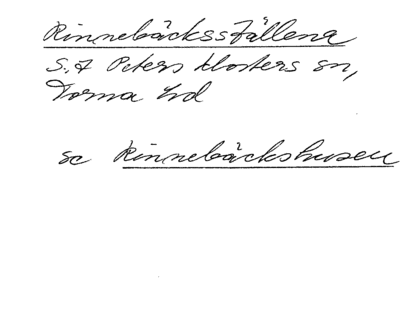 Rinnebäcksställena
S:t Peters klosters sn,
Torna hd
se Rinnebäckshusen